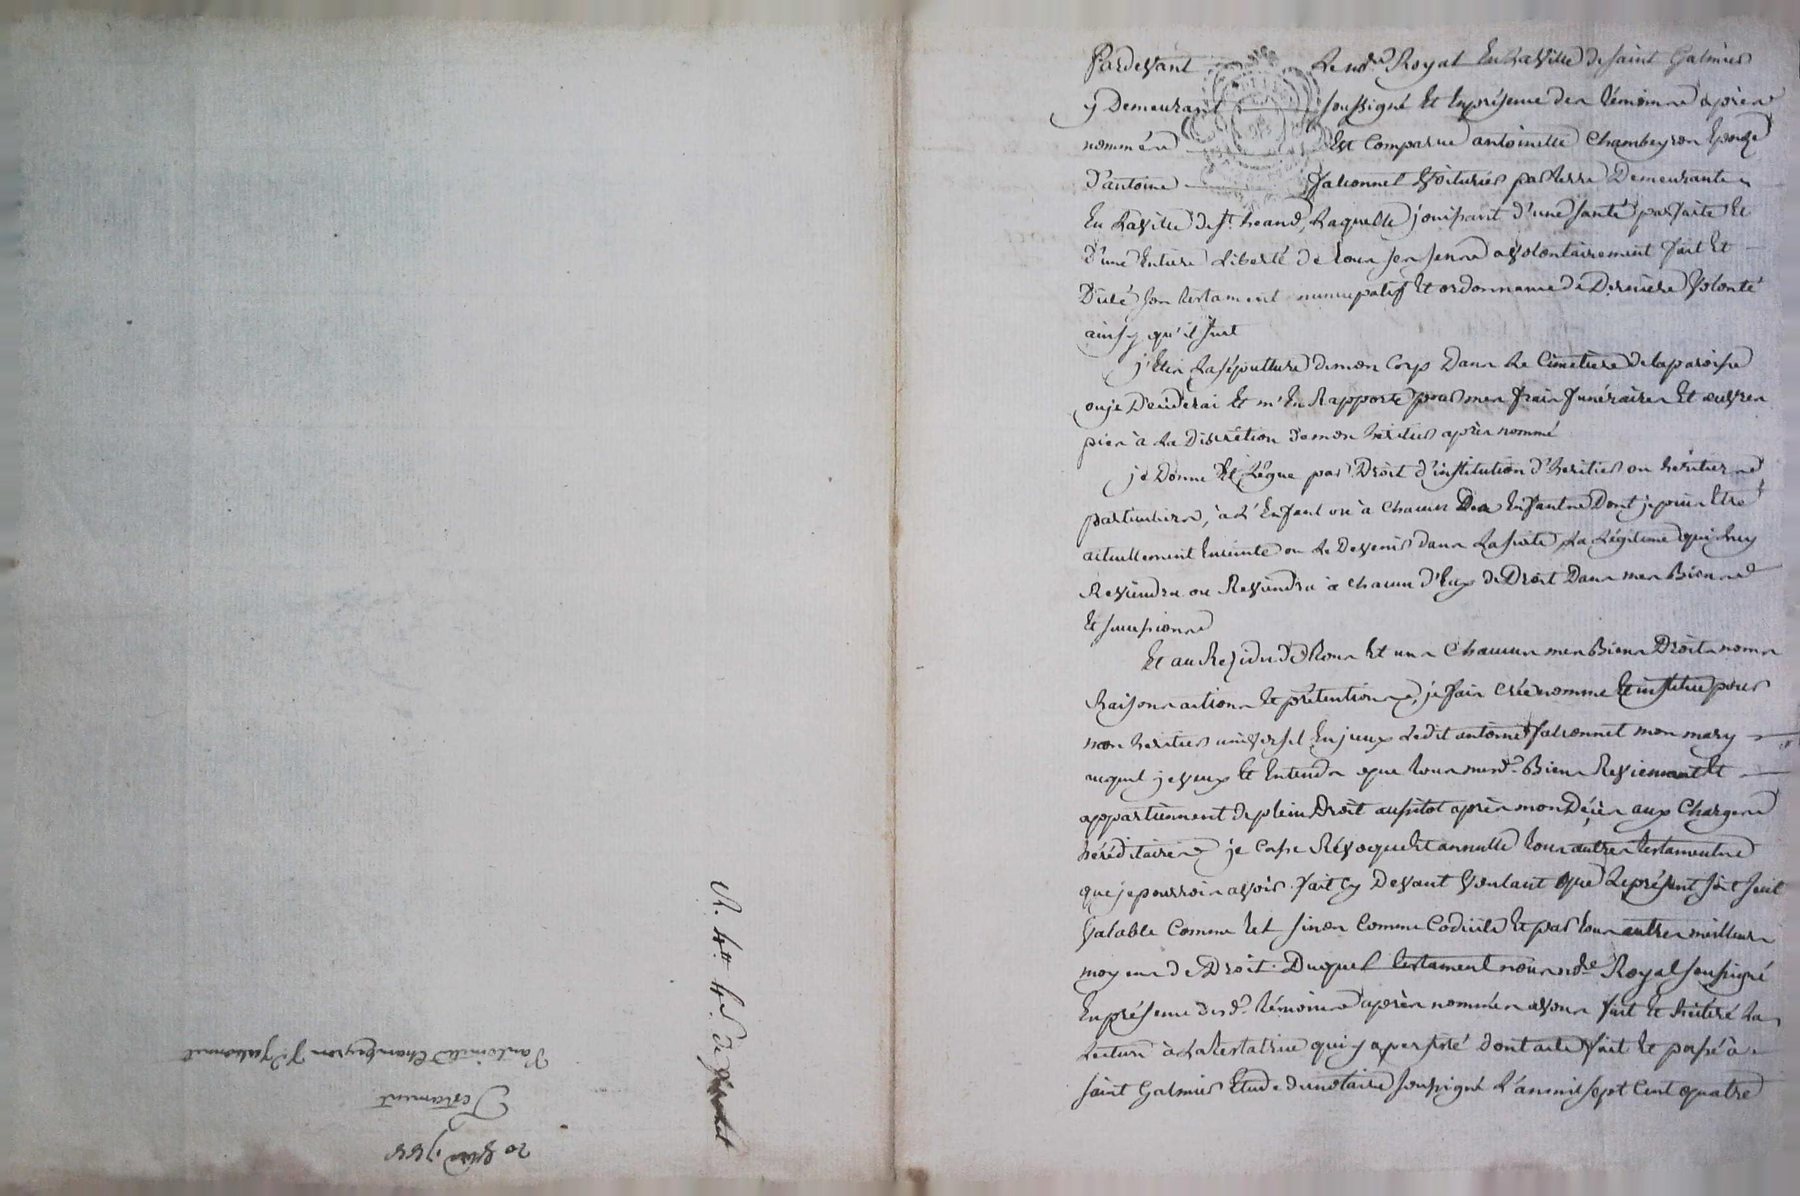 Pardevant Le nore Royal En La Ville de saint Galmier
y Demeurant soussigné Et En présence des témoins après
nommés Est Comparue antoinette Chambeyron Epouze
d'antoine Falconnet Voiturier par terre Demeurante
En La Ville de st. heand, Laquelle jouissant d'une santé parfaite Et
D'une Entiere Liberté de tous ses sens a volontairement fait Et
Dicté son testament nuncupatif Et ordonnance de Derniere Volonté
ainsy qu'il suit
j'Elis La sépulture de mon Corps Dans Le Cimetiere de la paroisse
ou je Deciderai Et m'En Rapporte pour mes frais funéraires Et œuvres
pies à La Discrétion de mon heritier après nommé
je Donne Et Légue par Droit d'institution d'heritier ou heritiers
particuliers, à L'Enfant ou à Chacun Des Enfants Dont je puis Etre
actuellement Enceinte ou Le Devenir Dans La suite La Légitime qui luy
Reviendra ou Reviendra à chacun d'Eux de Droit Dans mes Biens
Et succession
Et au Residu de tous Et uns Chacuns mes Biens Droits noms
Raisons actions Et prétentions, je fais crée nomme Et institue pour
mon heritier universel Ledit antoine Falconnet mon mary
auquel je veux Et Entends que tous mesd. Biens Reviennent Et
appartiennent de plein Droit aussitot après mon Décès aux Charges
héréditaires je Casse Révoque Et annulle tous autres testaments
que je pourrois avoir fait Cy Devant Voulant que Le présent soit seul
Valable Comme tel sinon Comme Codicile Et par tous autres meilleurs
moyens de Droit. Duquel testament nous nore Royal soussigné
En présence desd. témoins après nommés avons fait Et Réitéré La
Lecture à La testatrice qui y a persisté dont acte fait Et passé à
saint Galmier Etude du notaire soussigné L'an mil sept Cent quatre
R. 4tt 4s.
Testament
D'antoinette Chambeyron Fe. Falconnet